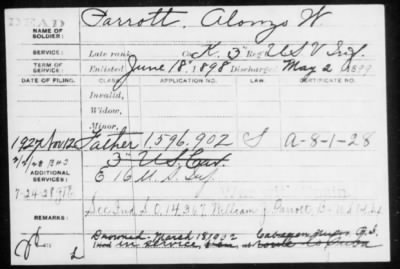 DEAD
NAME OF SOLDIER: Parrott, Alonzo W
SERVICE: Late rank, Co K, 3" Reg U S V Inf.
TERM OF SERVICE: Enlisted June 18", 1898 Discharged May 2 1899
DATE OF FILING. CLASS. APPLICATION NO. LAW. CERTIFICATE NO.
Invalid,
Widow,
Minor,
1927 Nov 12 Father 1.596.902 S A-8-1-28
3" U.S. Cav.
ADDITIONAL SERVICES: E 16 U. S. Inf.
7-24-28
See Ind S.O. 14367 William J. Parrott,
REMARKS:
Drowned March 18/02
in service,